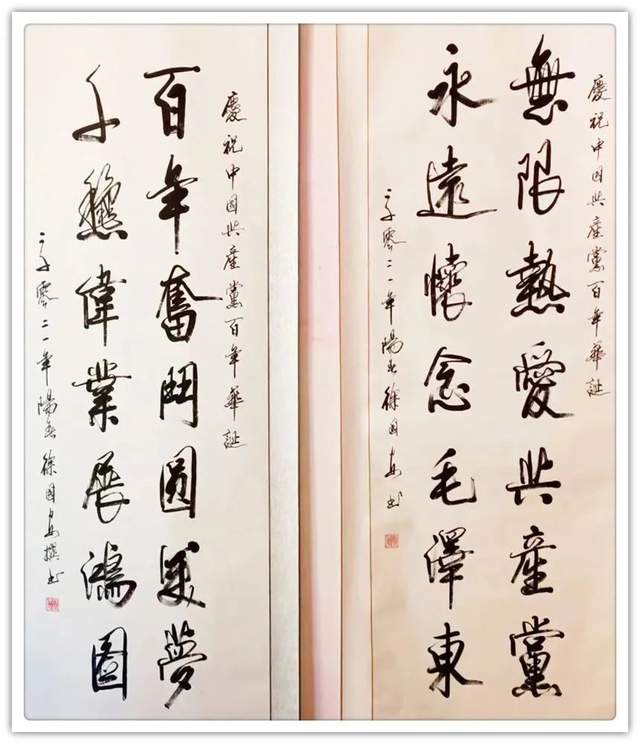 慶祝中国共產黨百年華誕
無限熱愛共產黨
永遠懷念毛澤東
二千零二一年陽春徐国书
慶祝中国共產黨百年華誕
百年奮鬥圓美夢
千龝偉業展鴻圖
二千零二一年陽春徐国撰书